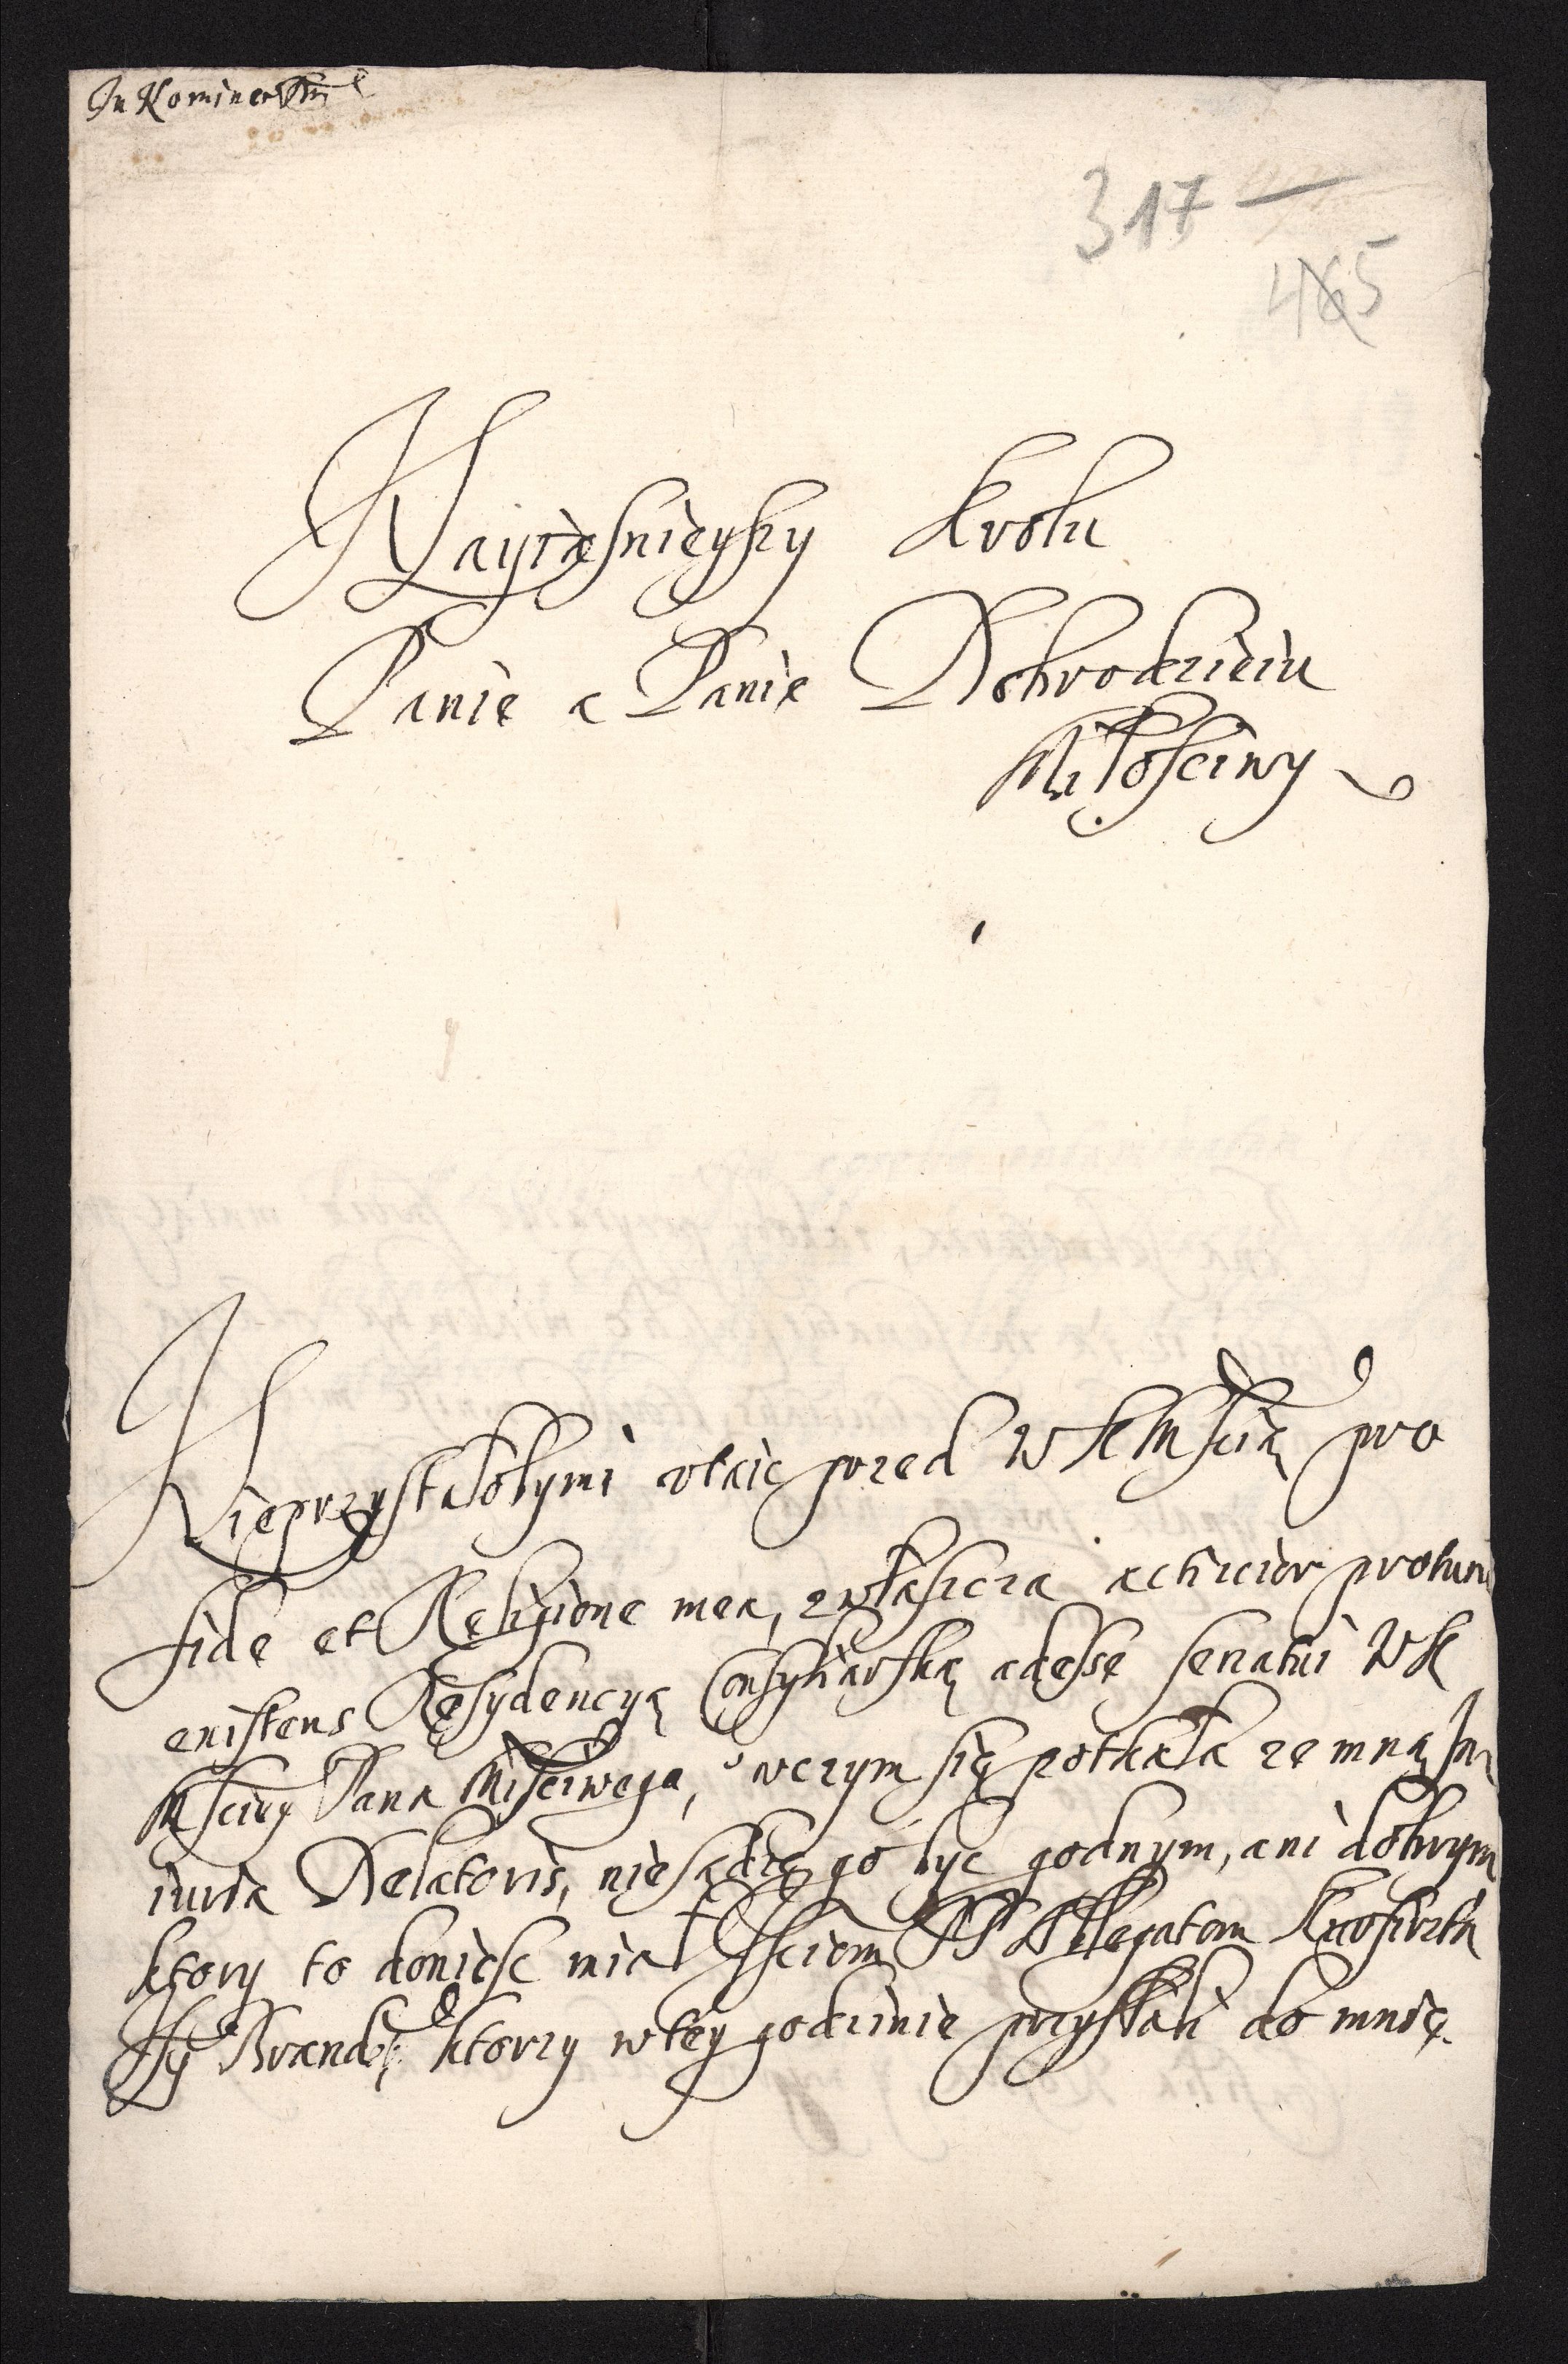 In Nomine
317
465
Nayiasnieyszy Krolu
Panie a Panie Dobrodzieiu
Miłosciwy
Nieprzystałobymi vtaic przed WKMscią pro
fide et Religione mea, zwłaszcza
Resydencyą Consyliarską adesse senatui WK
Mscivy Pana Miłsciwego, wczym się potkała ze mną In
iuria Delatoris, niesądzę go byc godnym, ani dobrym
ktory to doniesc miał Ichsciom PP Ablegatom Kurfirszta
Brand: ktorzy wtey godzinie przysłali do mnie